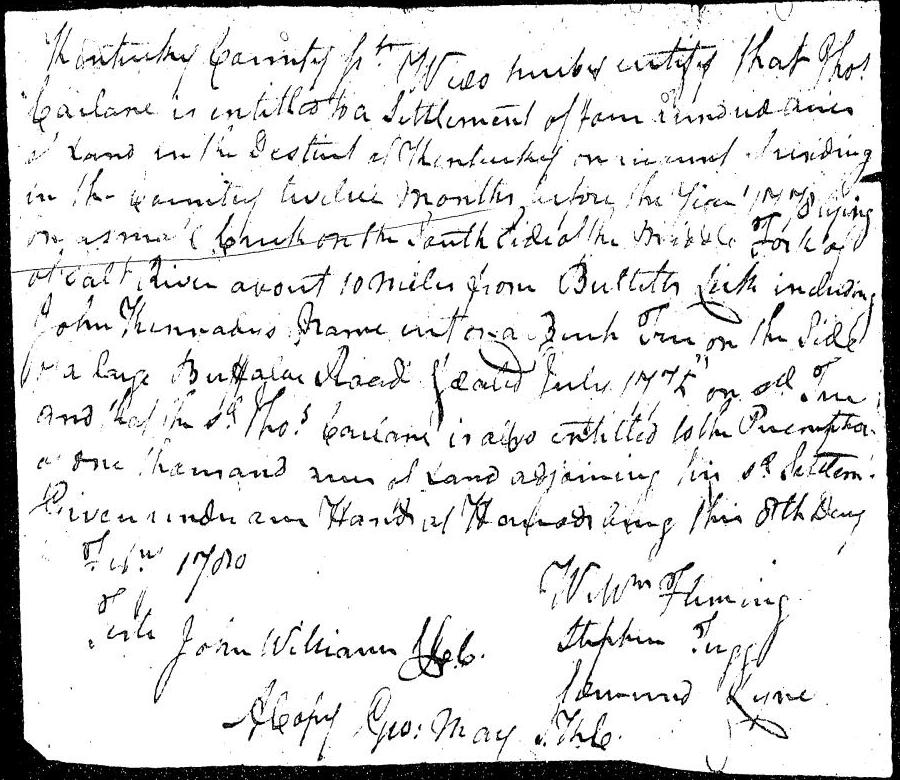 Kentucky County Sct. We do hereby certify that Thos
Carlane is entitled to a Settlement of four hundred acres
of Land in the District of Kentucky on account of residing
in the County twelve Months before the Year 1778 lying
on a small Creek on the South Side of the Middle Fork of
of Salt River about 10 miles from Bullitts Lick including
John Kennadys Name cut on a Beech Tree on the Side
of a large Buffaloe Road dated July 1775 on sd. Tree
and that the sd. Thos. Carlane is also entitled to the Preemption
of one thousand acres of Land adjoining his sd. Settlem.
Given under our Hands at Harrodsburg this 8th Day
Feby 1780
Wm Fleming
Teste John Williams
Stephen Trigg
Edmund Lyne
A Copy Geo: May